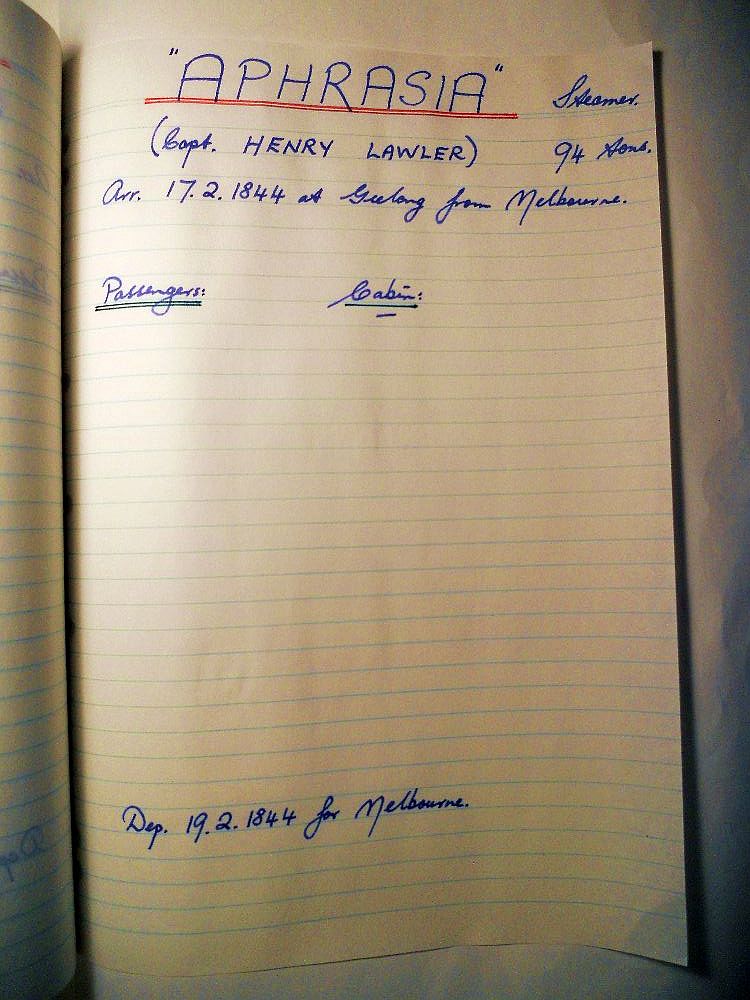 "APHRASIA" Steamer.
(Capt. HENRY LAWLER) 94 tons.
Arr. 17.2.1844 at Geelong from Melbourne.
Passengers: Cabin:
Dep. 19.2.1844 for Melbourne.